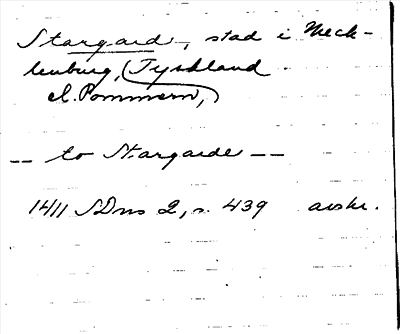 Stargard, stad i Meck-
lenburg, (Tyskland
el. Pommern,)
-- to Stargarde --
1411 SDns 2, s. 439 avskr.